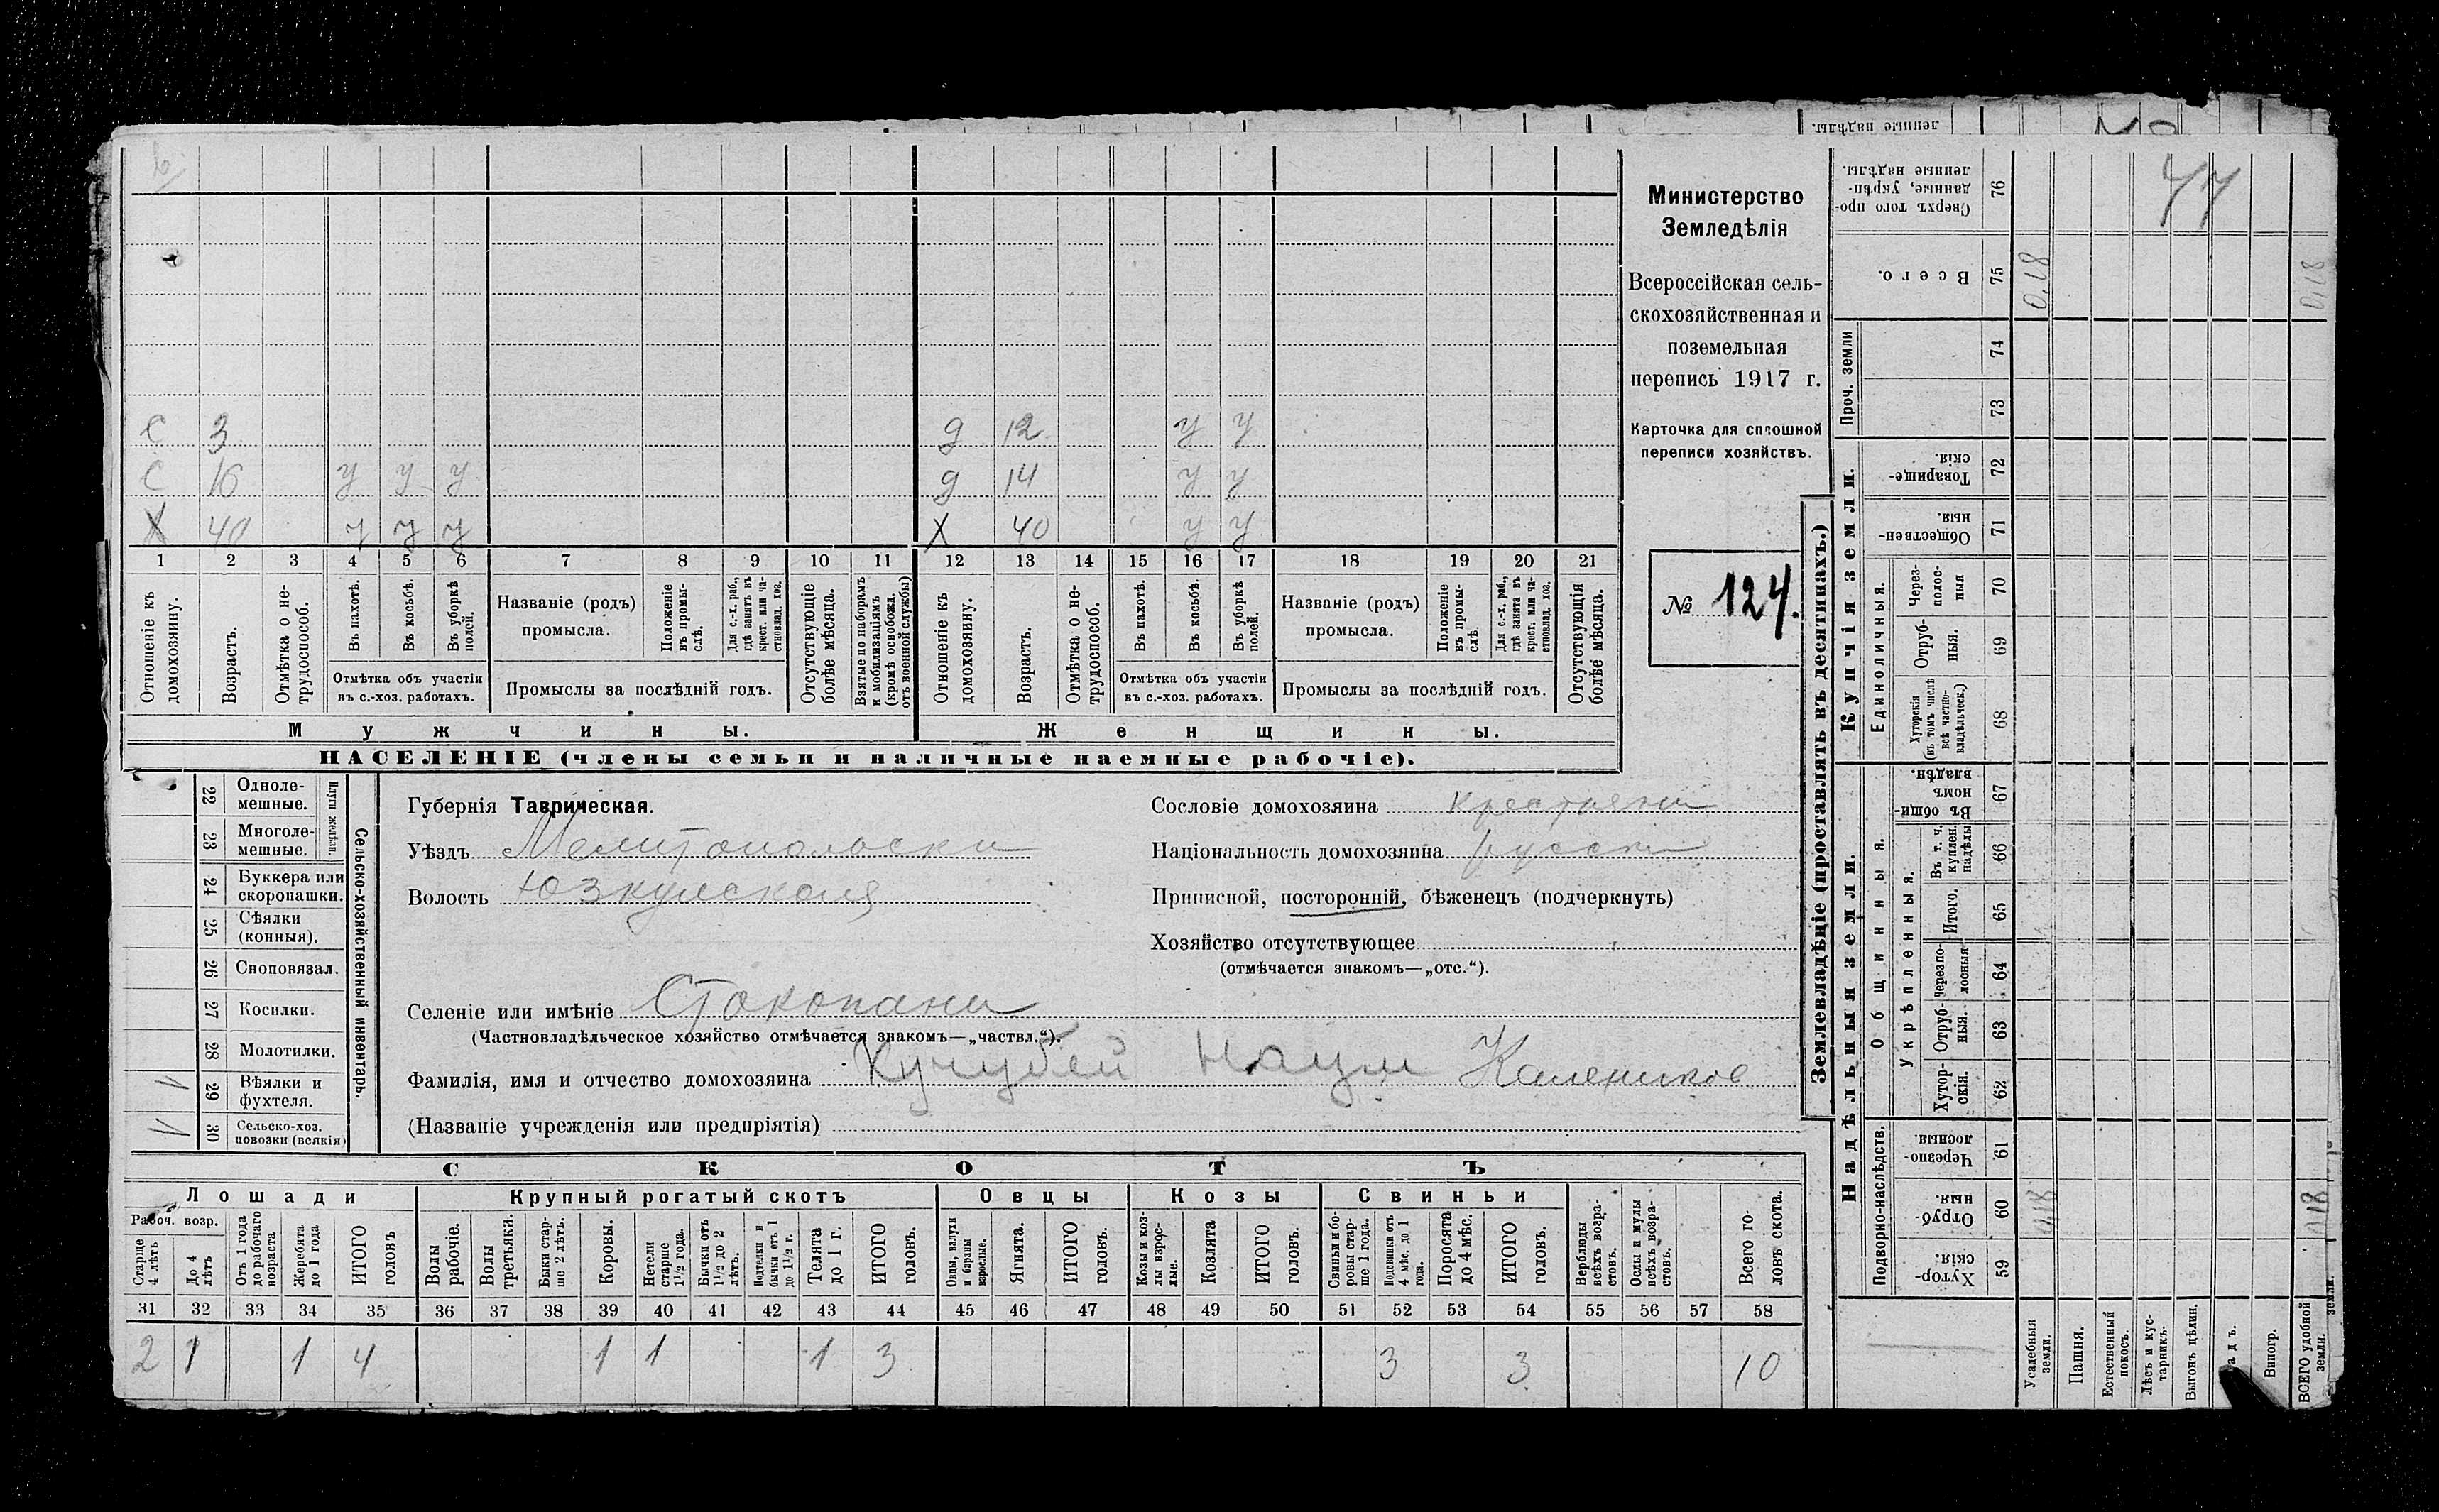 ленные надѣлы.
С 3 д 12 у у
С 16 у у у д 14 у у
Х 40 у у у Х 40 у у
1 2 3 4 5 6 7 8 9 10 11 12 13 14 15 16 17 18 19 20 21
Отношеніе къ домохозяину.
Возрастъ.
Отмѣтка о не-
трудоспособ.
Въ пахотѣ.
Въ косьбѣ.
Въ уборкѣ полей.
Отмѣтка объ участіи
въ с.-хоз. работахъ.
Названіе (родъ)
промысла.
Положеніе
въ промы-
слѣ.
Для с.-х. раб.,
гдѣ занятъ въ
крест. или ча-
стновлад. хоз.
Промыслы за послѣдній годъ.
Отсутствующіе
болѣе мѣсяца.
Взятые по наборамъ
и мобилизаціямъ
(кромѣ освобожд.
отъ военной службы)
Отношеніе къ
домохозяину.
Возрастъ.
Отмѣтка о не-
трудоспособ.
Въ пахотѣ.
Въ косьбѣ.
Въ уборкѣ
полей.
Отмѣтка объ участіи
въ с.-хоз. работахъ.
Названіе (родъ)
промысла.
Положеніе
въ промы-
слѣ.
Для с.-х. раб.,
гдѣ занята въ
крест. или ча-
стновлад. хоз.
Промыслы за послѣдній годъ.
Отсутствующія
болѣе мѣсяца.
Мужчины. Женщины.
НАСЕЛЕНІЕ (члены семьи и наличные наемные рабочіе).
Министерство
Земледѣлія
Всероссійская сель-
скохозяйственная и
поземельная
перепись 1917 г.
Карточка для сплошной
переписи хозяйствъ.
№ 124.
22 Одноле-
мешные.
23 Многоле-
мешные.
Плуги желѣзн.
24 Буккера или
скоропашки.
25 Сѣялки
(конныя).
26 Сноповязал.
27 Косилки.
28 Молотилки.
29 Вѣялки и
фухтеля.
30 Сельско-хоз.
повозки (всякія)
Сельско-хозяйственный инвентарь.
Губернія Таврическая.
Уѣздъ Мелитопольски
Волость Юзкуиская
Селеніе или имѣніе Стокопани
(Частновладѣльческое хозяйство отмѣчается знакомъ—„частвл.“).
Фамилія, имя и отчество домохозяина Кучубей Наум Калеников
(Названіе учрежденія или предпріятія)
Сословіе домохозяина крестьяни
Національность домохозяина русски
Приписной, посторонній, бѣженецъ (подчеркнуть)
Хозяйство отсутствующее
(отмѣчается знакомъ—„отс.“).
СКОТЪ
Лошади Крупный рогатый скотъ Овцы Козы Свиньи
Рабоч. возр.
Старше
4 лѣтъ
До 4
лѣтъ
Отъ 1 года
до рабочаго
возраста
Жеребята
до 1 года
ИТОГО
головъ
Волы
рабочіе.
Волы
третьяки.
Быки стар-
ше 2 лѣтъ.
Коровы.
Нетели
старше
1½ года.
Бычки отъ
1½ до 2
лѣтъ.
Подтелки и
бычки отъ 1
до 1½ г.
Телята
до 1 г.
ИТОГО
головъ.
Овцы, валухи
и бараны
взрослые.
Ягнята.
ИТОГО
головъ.
Козы и коз-
лы взрос-
лые.
Козлята
ИТОГО
головъ.
Свиньи и бо-
ровы стар-
ше 1 года.
Подсвинки отъ
4 мѣс. до 1
года.
Поросята
до 4 мѣс.
ИТОГО
головъ.
Верблюды
всѣхъ возра-
стовъ.
Ослы и мулы
всѣхъ возра-
стовъ.
Всего го-
ловъ скота.
31 32 33 34 35 36 37 38 39 40 41 42 43 44 45 46 47 48 49 50 51 52 53 54 55 56 57 58
2 1 1 4 1 1 1 3 3 3 10
Землевладѣніе (проставлять въ десятинахъ.)
Сверхъ того про-
данные, укрѣп-
ленные надѣлы.
76
47
Всего.
75
0,18
0,18
Проч. земли
74
73
Купчія земли.
Товарище-
скія.
72
Обществен-
ныя.
71
Единоличныя.
Через-
полос-
ныя
70
Отруб-
ныя.
69
Хуторскія
(въ томъ числѣ
всѣ частно-
владѣльческ.)
68
Надѣльныя земли.
Общинныя.
Въ общи
номъ
владѣн.
67
Укрѣпленныя.
Въ т. ч.
куплен.
надѣлы
66
Итого.
65
Черезпо-
лосныя
64
Отруб-
ныя.
63
Хутор-
скія.
62
Подворно-наслѣдств.
Черезпо-
лосныя.
61
Отруб-
ныя.
60
0,18
0,18
Хутор-
скія.
59
Усадебныя
земли.
Пашня.
Естественный
покосъ.
Лѣсъ и кус-
тарникъ.
Выгонъ цѣлин.
Виногр.
ВСЕГО удобной
земли.